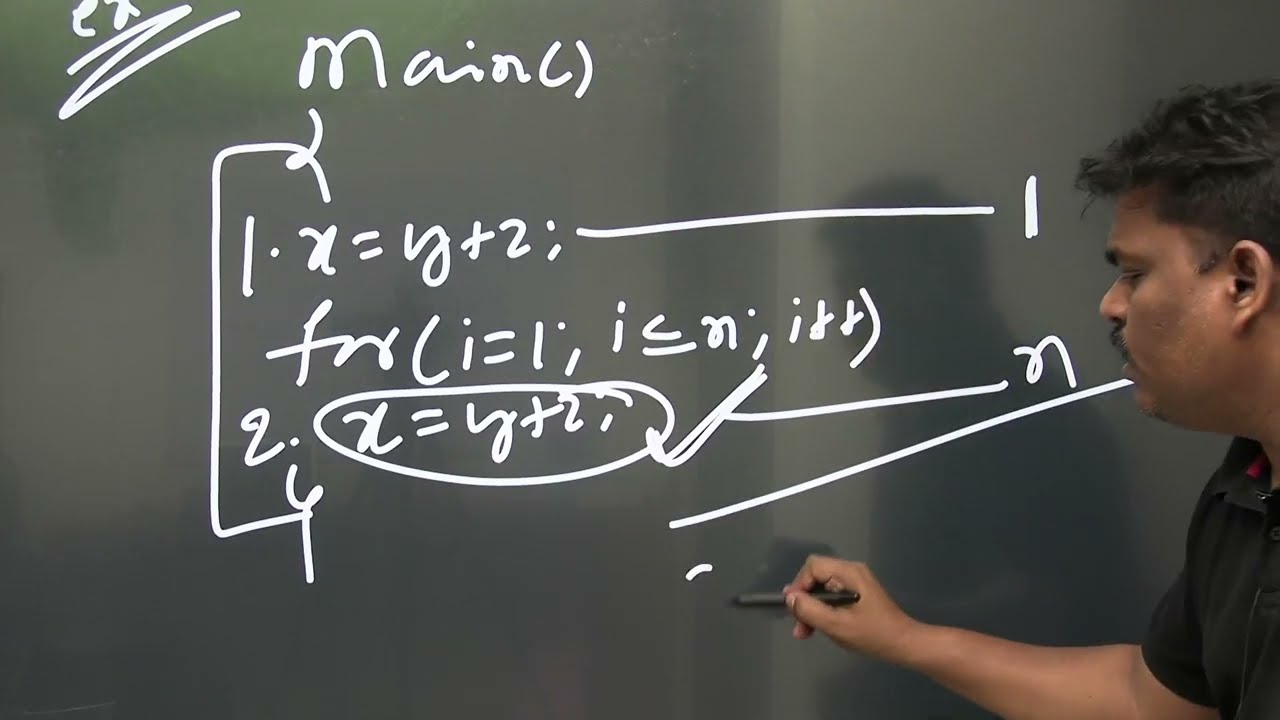 ex
Main()
{
1. x = y+2; 1
for(i=1; i≤n; i++)
2. x = y+2; n
}